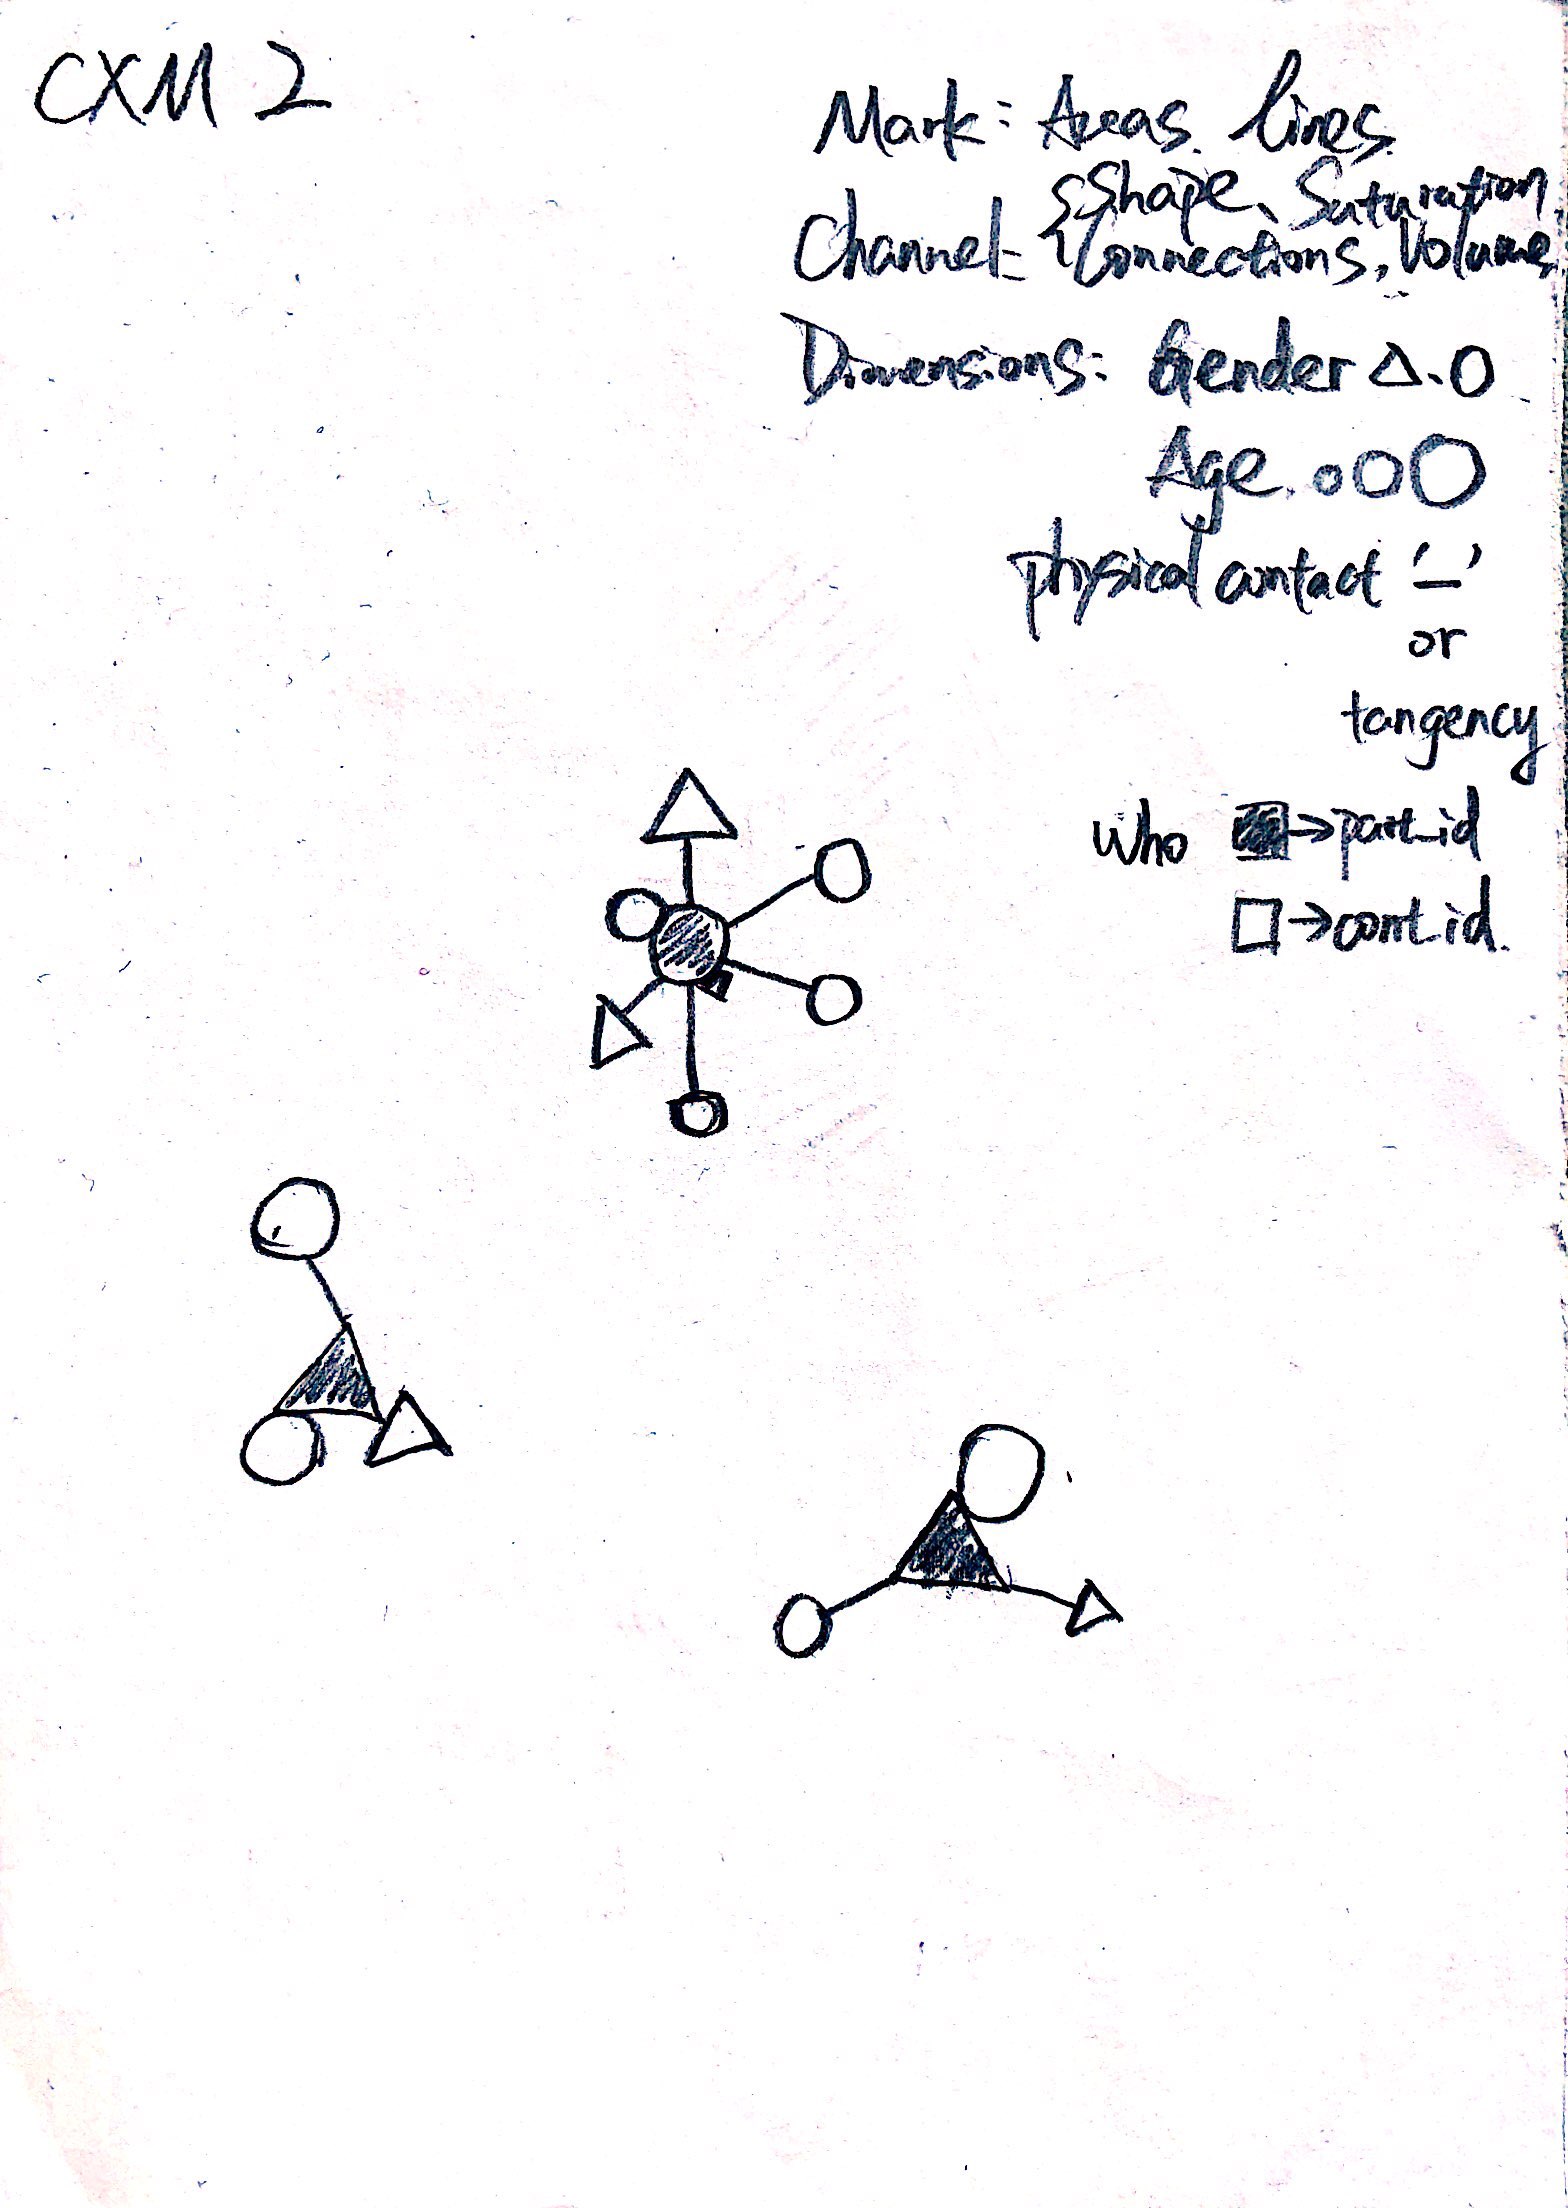 CXM 2
Mark: Areas. lines.
Channel: { Shape、Saturation,
Connections, Volume.
Dimensions: Gender △.○
Age. oOO
physical contact '—'
or
tangency
who ■→part_id
□→cont_id.